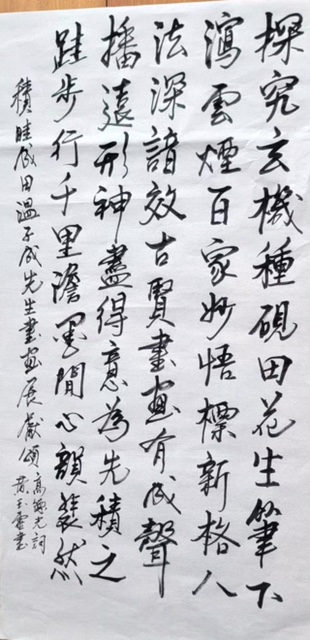 探究玄機種硯田花生筆下
瀉雲煙百家妙悟標新格八
法深諳效古賢書畫有成聲
播遠形神盡得意為先積之
跬步行千里澹墨間心韻裊然
積畦成田溫子成先生書畫展獻頌
高德光詞
黃玉書